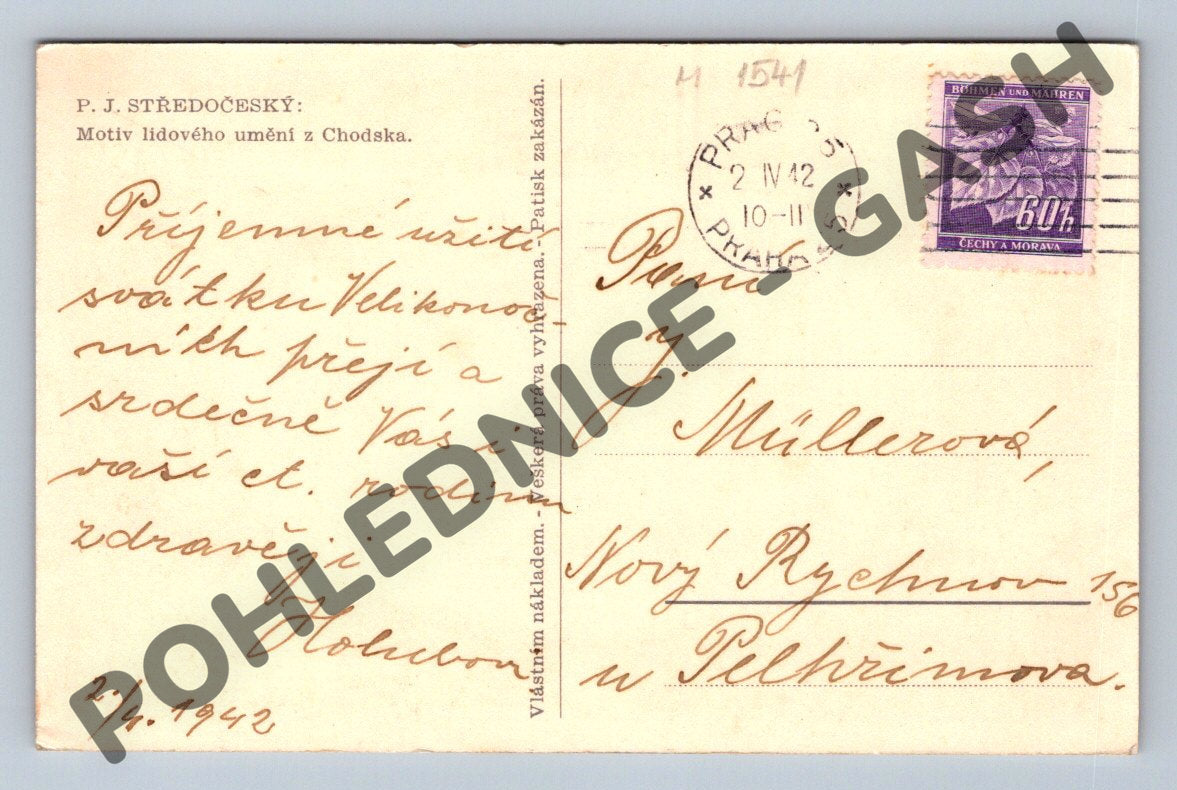 P. J. STŘEDOČESKÝ:
Motiv lidového umění z Chodska.
Příjemné užití
svátku Velikonoč-
ních přejí a
srdečně Vás i
vaší ct. rodinu
zdravěji
Holubovi
2./4. 1942
Vlastním nákladem. - Veškerá práva vyhrazena. - Patisk zakázán.
H 1541
PRAG
2 IV 42
10-11
PRAHA
BÖHMEN UND MÄHREN
60h
ČECHY A MORAVA
Paní
J.
Müllerová,
Nový Rychnov 156
u Pelhřimova.
POHLEDNICE - GASH